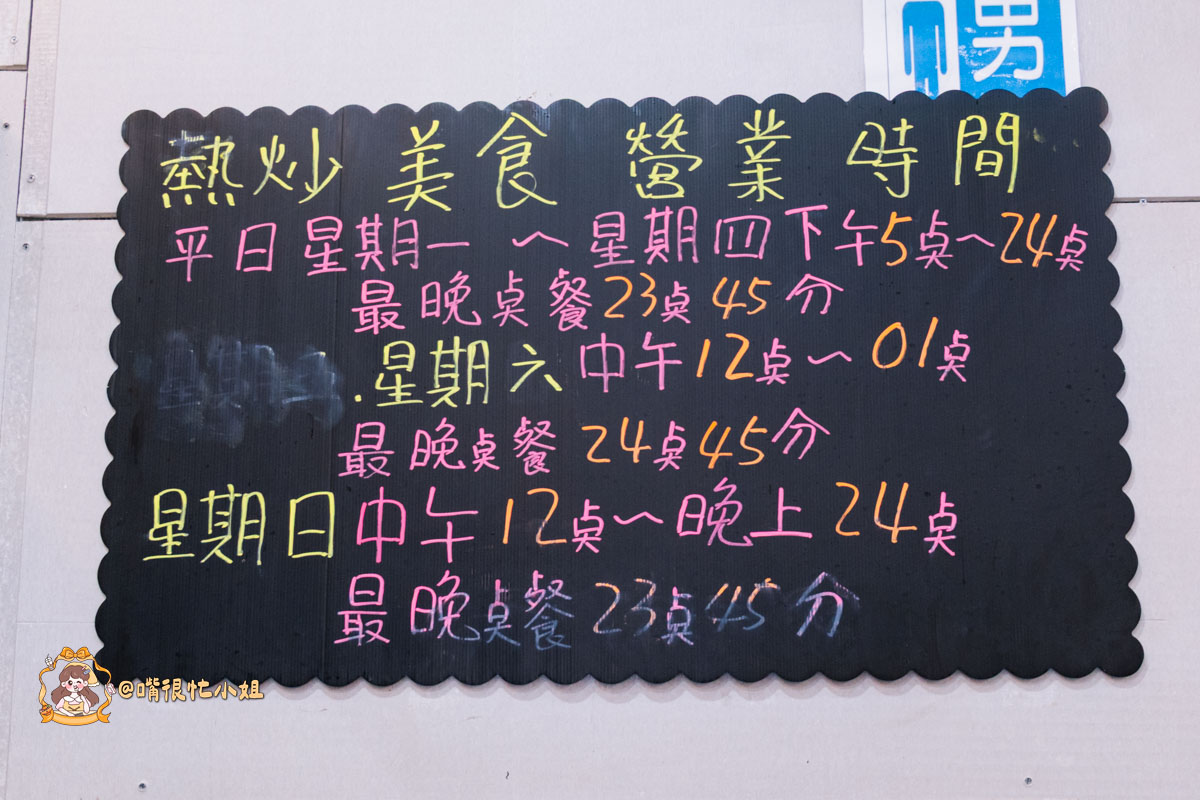 男
熱炒美食 營業時間
平日星期一~星期四下午5桌~24桌
最晚桌餐23桌45分
.星期六中午12桌~01桌
最晚桌餐24桌45分
星期日中午12桌~晚上24桌
最晚桌餐23桌45分
@嘴很忙小姐